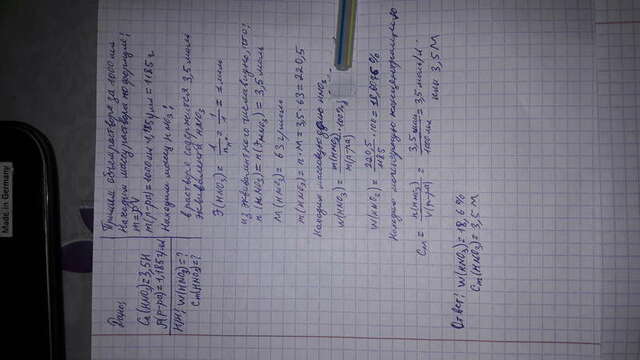 Дано:
Cн(HNO3)=3,5Н
ρ(р-ра)=1,185г/мл
Н/Н: W(HNO3)=?
Cm(HNO3)=?
Примем объем раствора за 1000 мл
Находим массу раствора по формуле:
m=ρV
m(р-ра)=1000мл·1,185г/мл=1185г.
Находим массу HNO3:
в растворе содержится 3,5 моль
эквивалентов HNO3
Э(HNO3)=1/nн+=1/1=1 моль
из эквивалентного числа видно, что:
n(HNO3)=n(fэHNO3)=3,5 моль
M(HNO3)=63 г/моль
m(HNO3)=n·M=3,5·63=220,5
Находим массовую долю HNO3
W(HNO3)=m(HNO3)·100%/m(р-ра)
W(HNO3)=220,5/1185·100=18,6%
Находим молярную концентрацию
Cm=n(HNO3)/V(р-ра)=3,5моль/1000мл=3,5моль/л
или 3,5М
Ответ: W(HNO3)=18,6%
Cm(HNO3)=3,5М
Made in Germany